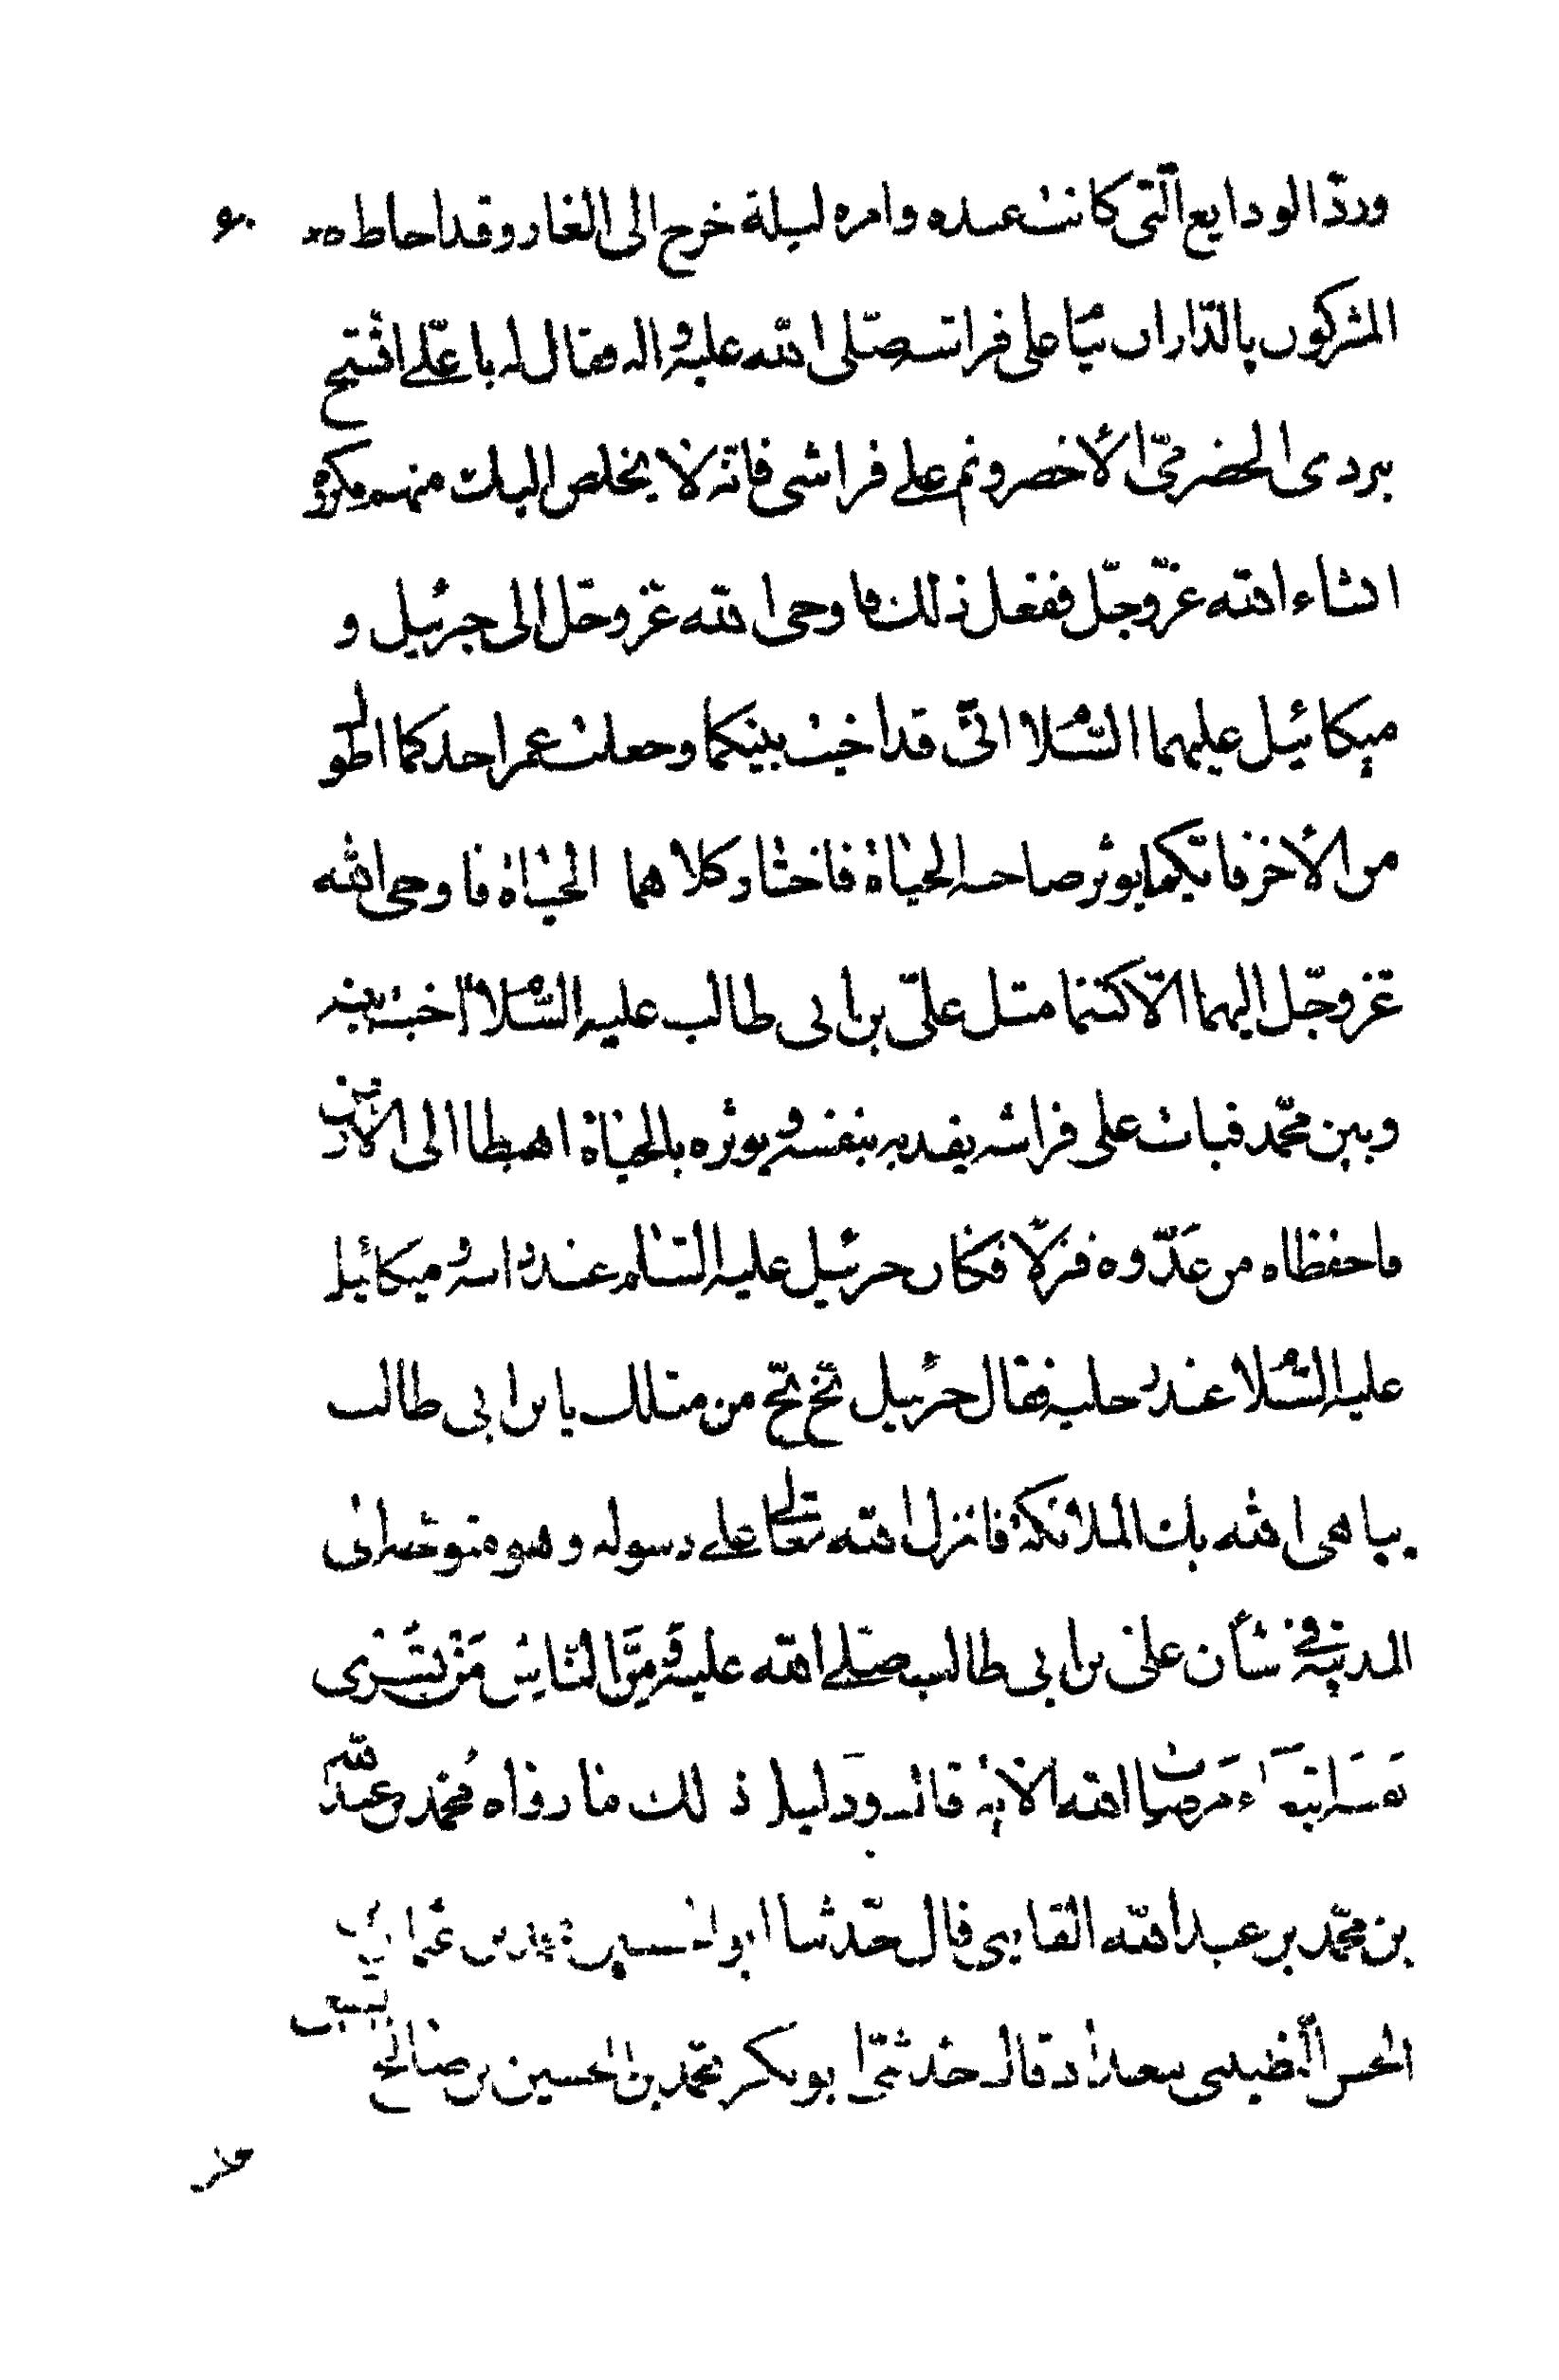 وردّ الودايع الّتى كانت عنده وامره ليلة خرج الى الغار وقد احاط ٦٠
المشركون بالدّار ان يبيا على فراشه صلّى الله عليه واله فقال له يا علىّ اتّشح
ببردى الحضرمىّ الأخضر ونم على فراشى فانّه لا يخلص اليك منهم مكروه
انشاء الله عزّ وجلّ ففعل ذلك فاوحى الله عزّ وجلّ الى جبرئيل و
ميكائيل عليهما السّلام انّى قد اخيت بينكما وجعلت عمر احدكما اطول
من الأخر فايّكما يوثر صاحبه الحياة فاختار كلاهما الحياة فاوحى الله
عزّ وجلّ اليهما الّا كنتما مثل علىّ بن ابى طالب عليه السّلام اخيت بينه
وبين محمّد فبات على فراشه يفديه بنفسه ويوثره بالحياة اهبطا الى الأرض
فاحفظاه من عدّوه فنزلا فكان جبرئيل عليه السّلام عند راسه وميكائيل
عليه السّلام عند رجليه فقال جبرئيل بخّ بخّ من مثلك يا بن ابى طالب
يباهى الله بك الملائكة فانزل الله تعالى على رسوله وهو متوجّه الى
المدينة فى شأن علىّ بن ابى طالب صلّى الله عليه وَمِنَ النّاسِ مَنْ يَشْرى
نفسه ابتغاء مرضات الله الأية قال ودليل ذلك ما رواه محمّد بن عبد الله
بن محمّد بن عبد الله القاينى قال حدّثنا ابو الحسين محمّد بن عثمان بن
الحسن النّصيبى ببغداد قال حدّثنى ابو بكر محمّد بن الحسين بن صالح السبيعى